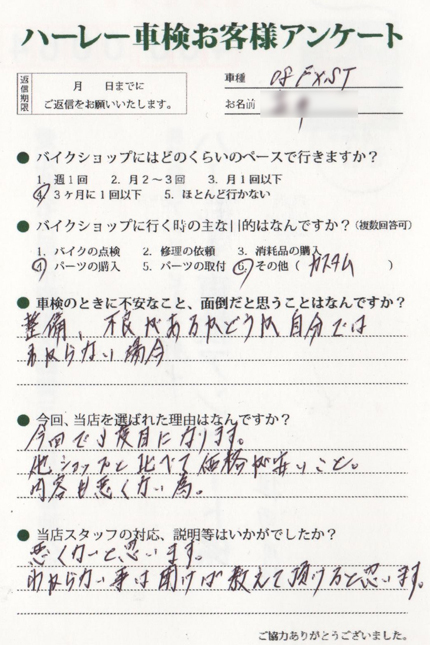 ハーレー車検お客様アンケート
返信期限
月　日までに
ご返信をお願いいたします。
車種 08 FXST
お名前
● バイクショップにはどのくらいのペースで行きますか？
1. 週1回　2. 月2～3回　3. 月1回以下
4. 3ヶ月に1回以下　5. ほとんど行かない
● バイクショップに行く時の主な目的はなんですか？（複数回答可）
1. バイクの点検　2. 修理の依頼　3. 消耗品の購入
4. パーツの購入　5. パーツの取付　6. その他（ カスタム ）
● 車検のときに不安なこと、面倒だと思うことはなんですか？
整備、不良があるかどうか自分では
わからない場合
● 今回、当店を選ばれた理由はなんですか？
今回で3度目になります。
他ショップと比べて価格が安いこと。
内容も悪くない為。
● 当店スタッフの対応、説明等はいかがでしたか？
悪くないと思います。
わからない事は聞けば教えて頂けると思います。
ご協力ありがとうございました。